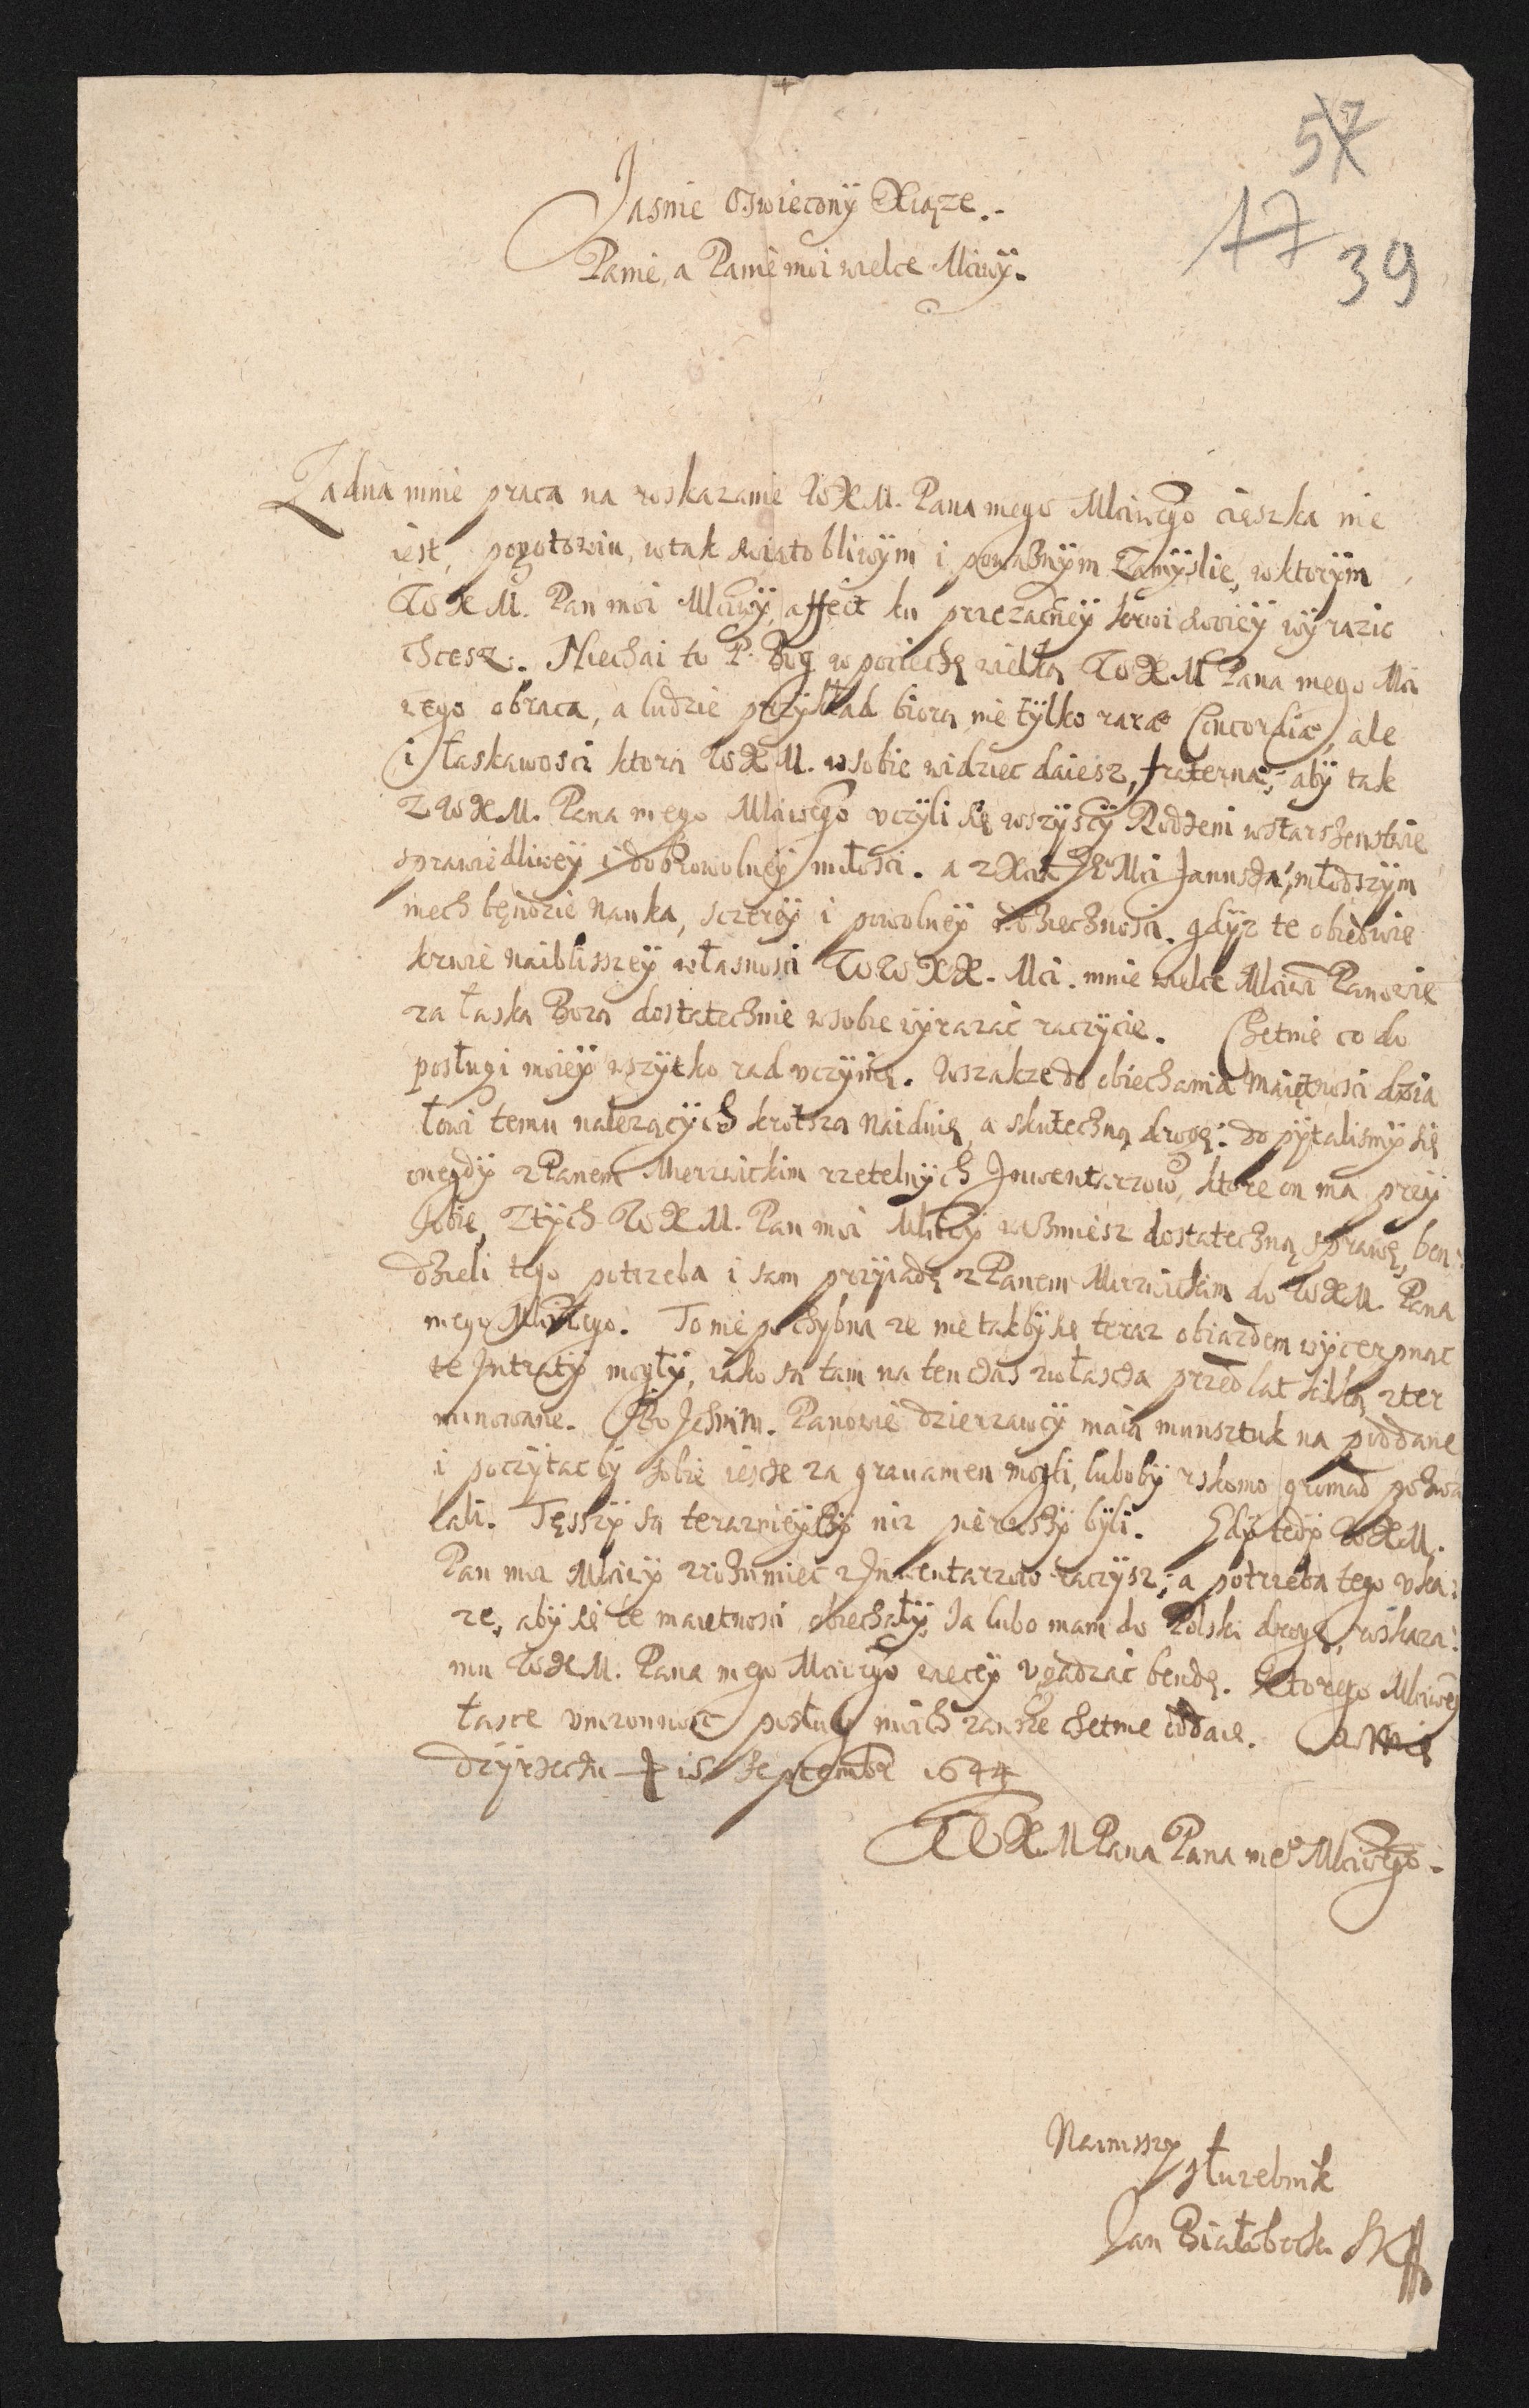 57
17
39
Jasnie Oswiecony Xiąze.
Panie, a Panie moi wielce Mciwÿ.
Zadna mnie praca na roskazanie W X M. Pana mego Mciwego cięszka nie
iest, pogotowiu, w tak swiatobliwÿm i powaznÿm Zamÿslie, w ktorÿm
W X M. Pan moi Mciwÿ, affect ku przezacneÿ krwi swoieÿ wÿrazic
chcesz. Niechai to P. Bog w pociechę wielką W X M Pana mego Mci
wego obraca, a ludzie przÿkład biorą nie tÿlko raræ Concordiæ, ale
i łaskawosci ktorą W X M. w sobie widziec daiesz, fraternæ, abÿ tak
z W X M. Pana mego Mciwego uczÿli się wszÿscÿ Rodzeni w starszenstwie
sprawiedliweÿ i dobrowolneÿ miłosci. a z Xcia Je Mci Janusza, młodszÿm
niech bęndzie nauka, sczereÿ i powolneÿ gdÿz te obiedwie
krwie naiblisszeÿ własnosci W W X X. Mci. mnie wielce Mciwi Panowie
za łaską Bozą dostatecznie w sobie wÿrazac raczÿcie. Chetnie co do
posługi moieÿ wszÿtko rad uczÿnię. Wszakze do obiechania Maiętnosci dzia
łowi temu nalezącÿch krotszą naidnię, a skuteczną drogę: do pÿtalismÿ się
onegdÿ z Panem Mierzwickim rzetelnÿch Inwentarzow, ktore on ma przÿ
sobie, z tÿch W X M. Pan moi Mciwÿ wezmiesz dostateczną sprawę, ben:
dzieli tego potrzeba i sam przÿiadę z Panem Mierzwickim do W X M. Pana
mego Mciwego. To nie pochÿbna ze nie takbÿ się teraz obiazdem wÿczerpnac
te Intratÿ mogłÿ, iako są tam na ten czas zwłascza przed lat kilką zter
minowane. Bo Ichmm. Panowie dzierzawcÿ maią munsztuk na poddane
i poczÿtac bÿ sobie iescze za gravamen mogli, lubobÿ rzkomo gromad
lali. Tęsszÿ są teraznieÿszÿ niz pierwszÿ bÿli. Gdÿ tedÿ W X M.
Pan moi Mciwÿ zrozumiec z Inwentarzow raczÿsz, a potrzeba tego uka:
ze, abÿ się te maietnosci obiechałÿ, Ja lubo mam do Polski drogę, roskaza:
niu W X M. Pana mego Mciwego wieceÿ ugadzac bendę. Ktorego Mciweÿ
łasce unizonnosc posług moich zawsze chetnie oddaię.
15 Septembr 1644
W X M Pana Pana me° Mciwego.
Naimsszÿ
słuzebnik
Jan Białobocki